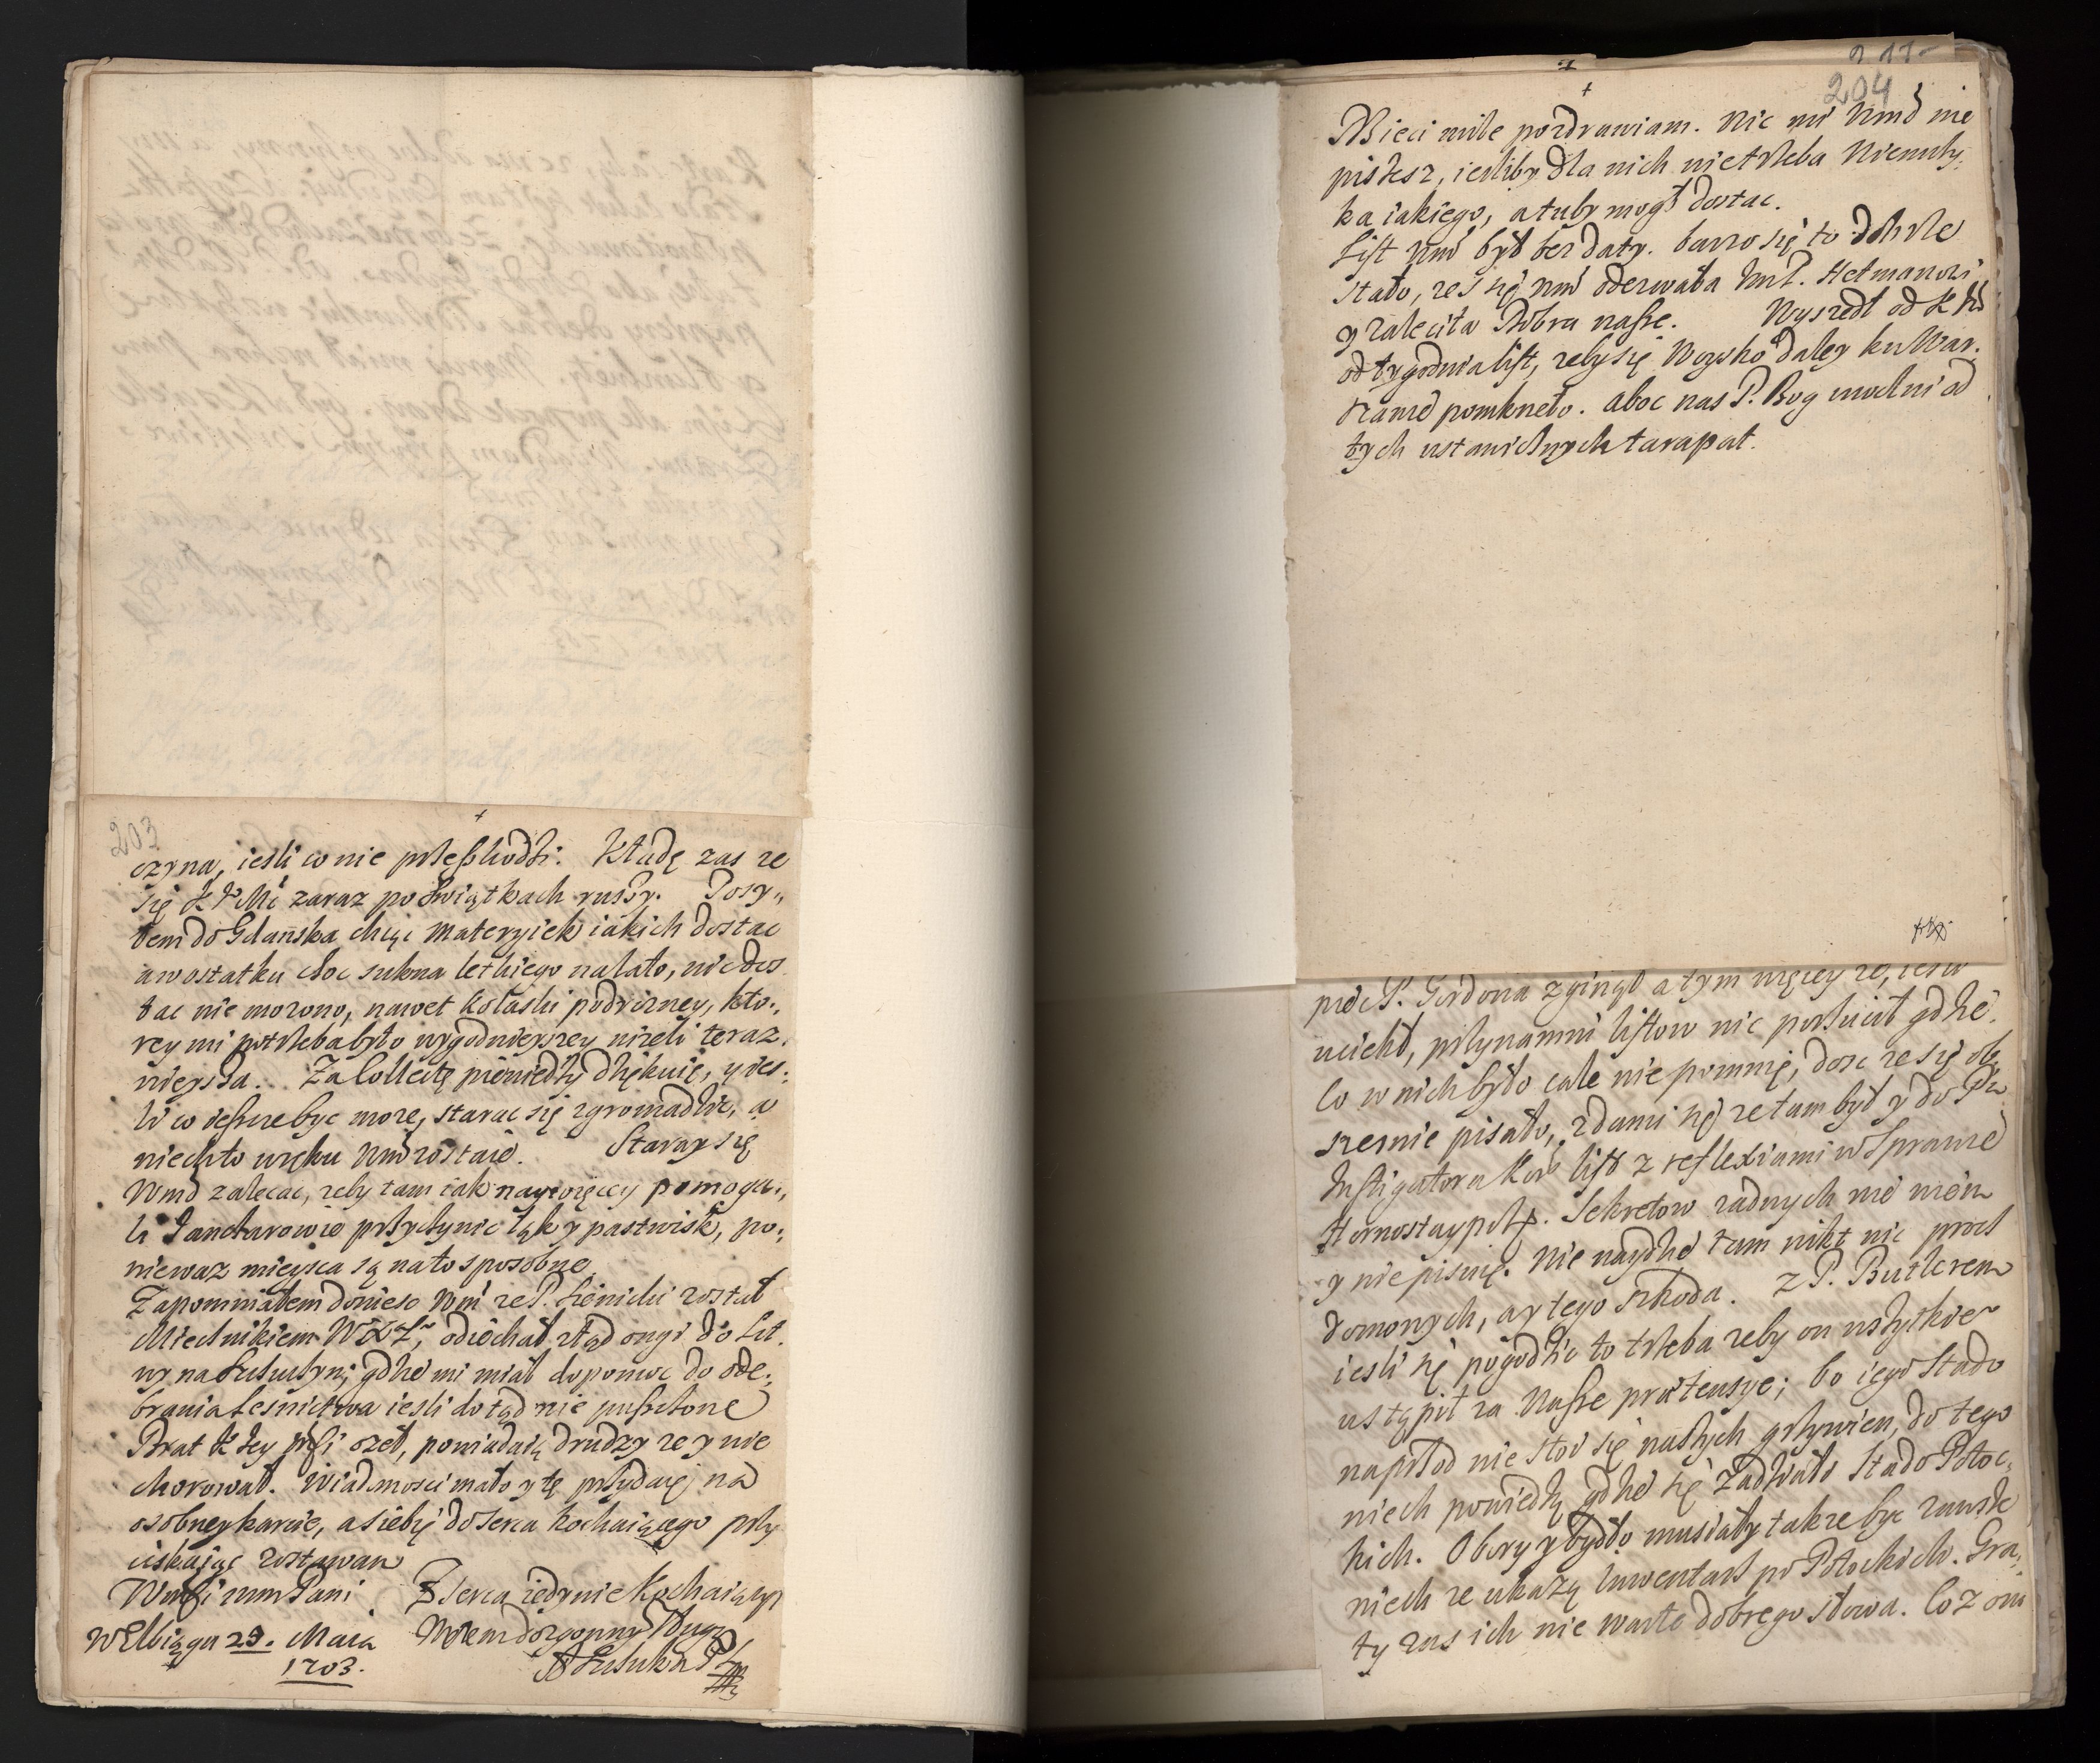 203
czyna, iesli co nie przeszkodzi. Kładę zas ze
się K JMć zaraz po swiątkach ruszy. Posy„
łem do Gdańska chcąc materyiek iakich dostac
a w ostatku choc sukna letkiego na lato, nic dos
tac nie mozono, nawet kolaski podrozney, kto„
rey mi potrzeba było wygodnieyszey nizeli teraz„
nieysza. Za Collectę pieniedzy dziękuię, y ies„
li co ieszcze byc moze, starac się zgromadzic, a
niech to w ręku Wmć zostaie. Staray się
Wmć zalecac, zeby tam iak naywięcey pomoga„
li Janczarowie przyczynic łąk y pastwisk, po„
niewaz mieysca są na to sposobne.
Zapomniałem doniesc Wmć ze P. Lenicki został
Miecznikiem WXL, odiechał ztąd onyi do Lit
wy na gdzie mi miał dopomoc do ode„
brania Lesnictwa iesli dotąd nie puszczone
Brat K Jey ozeł, powiadaią drudzy ze y nie
chorował. Wiadmosci mało y tę przydaię na
osobney karcie, a siebię do serca kochaiącego przy
ciskaiąc zostawam
Wmsci mm Pani Z serca iedynie kochaiący
W Elbiągu 29. Maia Mężem dozgonny sługą
1703.
217
204
Dzieci mile pozdrawiam. Nic mi Wmć nie
piszesz, iesliby dla nich nie trzeba Niemczy„
ka iakiego, a tuby mogł dostac.
List Wmć był bez daty. barzo się to dobrze
stało, zes się Wmć ozezwała ImP. Hetmanowi
y zaleciła Dobra nasze. Wyszedł od K JMć
od tygodnia list, zeby się Woysko daley ku War„
szawie pomkneło. aboc nas P. Bog uwolni od
tych ustawicznych tarapat.
P. Gordona zginął a tym więcey ze, iesli
uciekł, przynamni listow nie porzucił gdzie.
Co w nich było cale nie pomnię, dosc ze się ob„
szernie pisało, zda mi się ze tam był y do Pu
Instigatora Kor list z reflexiami w sprawie
Hornostaypolx. Sekretow zadnych nie wiem
y nie piszę. Nie naydzie tam nikt nic procz
domowych, ay tego szkoda. Z P. Butlerem
iesli się pogodzic to trzeba zeby on wszytkie
ustąpił za Nasze praetensye; bo iego stado
naprzod nie stoi się naszych grzywien, do tego
niech powiedzą gdzie się zadziało Stado Potoc„
kich. Obory y bydło musiały takze byc zawsze
niech ze ukazą Inwentarz po Potockich. Gra„
ty zas ich nie warte dobrego słowa. Coz oni